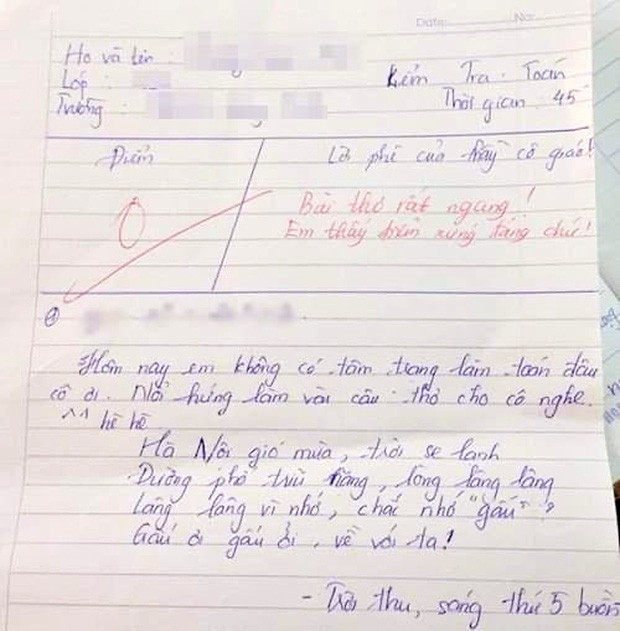 Date: No:
Họ và tên :
Lớp :
Trường :
Kiểm Tra Toán
Thời gian 45'
Điểm
Lời phê của thầy cô giáo!
0
Bài thơ rất ngang!
Em thấy điểm xứng đáng chứ!
Hôm nay em không có tâm trạng làm toán đâu
cô ơi. Nổi hứng làm vài câu thơ cho cô nghe.
^^ hề hề
Hà Nội gió mùa, trời se lạnh
Đường phố trũi nặng, lòng lâng lâng
Lâng lâng vì nhớ, chắc nhớ "gấu"?
Gấu ơi gấu ới, về với ta!
- Trời thu, sáng thứ 5 buồn